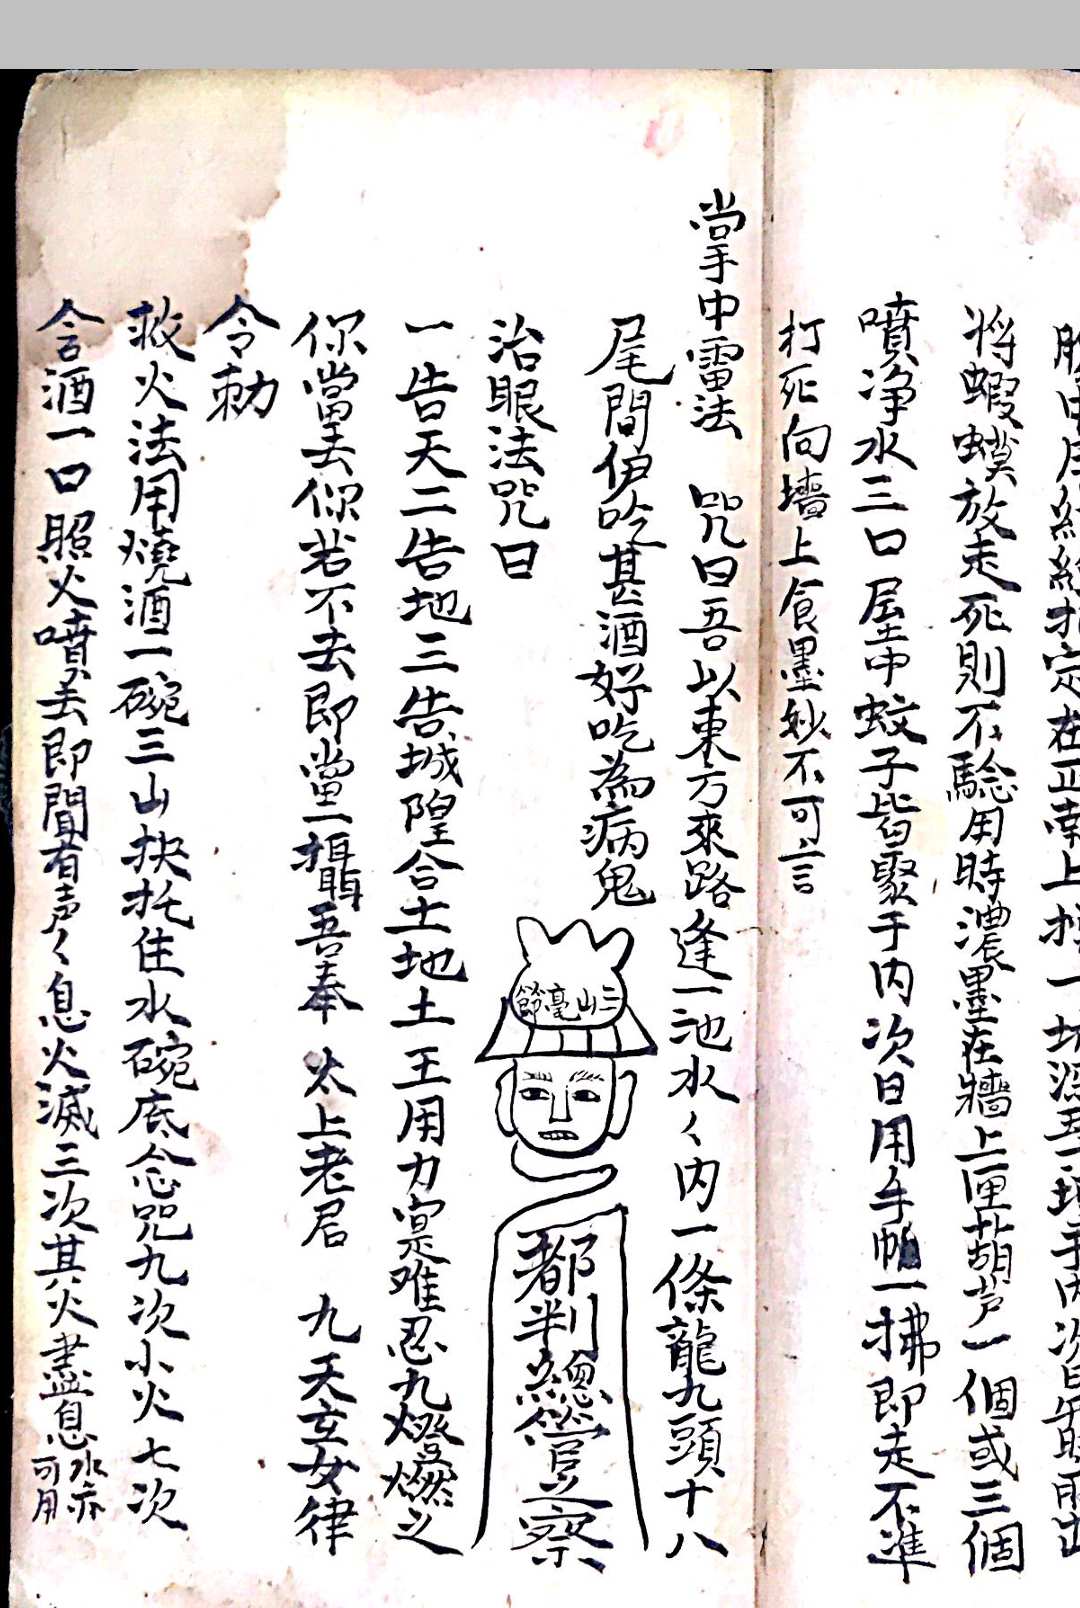 將蝦蟆放走死則不驗用時濃墨在牆上画葫芦一個或三個
噴净水三口屋中蚊子皆聚于内次日用手帕一拂即走不準
打死向墻上食墨妙不可言
掌中雷法 咒曰吾以東方來路逢一池水々内一條龍九頭十八
尾間伊吃甚酒好吃為病鬼
三山毫節
都判總管之察
治眼法咒曰
一告天二告地三告城隍合土地土王用力难忍九燈燃之
你當去你若不去即當一攝吾奉 太上老君 九天玄女律
令勅
救火法用燒酒一碗三山抉托住水碗底念咒九次小火七次
含酒一口照火噴去即聞有声々息火滅三次其火盡息水亦可用